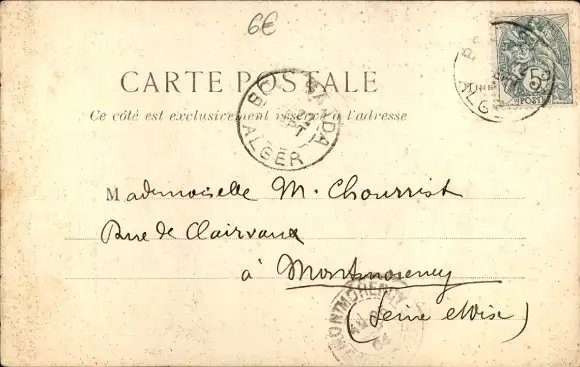 6€
CARTE POSTALE
Ce côté est exclusivement réservé à l'adresse
BOU SAADA
ALGER
5c
POSTES
ALGER
Mademoiselle M. Chourrist
Rue de Clairvaux
à Montmorency
(Seine et Oise)
MONTMORENCY
04